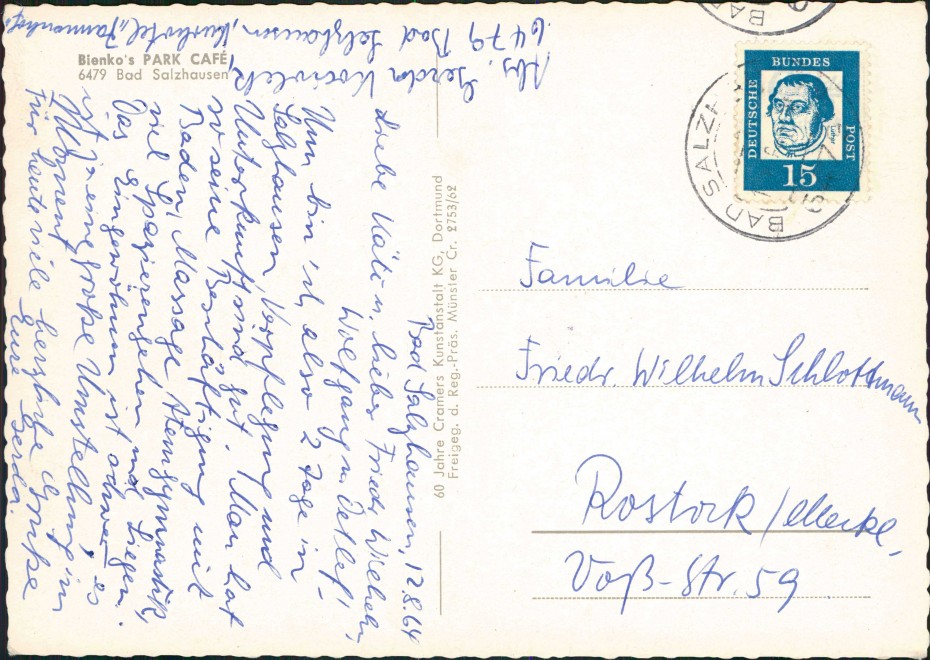 Bienko's PARK CAFÉ,
6479 Bad Salzhausen
Abs. Gerda
6479 Bad Salzhausen, Kurhotel „Tannenhof"
Bad Salzhausen, 12.8.64
Liebe Käti u. lieber Friedr. Wilhelm,
Wolfgang u. Detlef!
Nun bin ich also 2 Tage in
Salzhausen, Verpflegung und
Unterkunft sind gut. Man hat
so seine Beschäftigung mit
Baden, Massage, Atemgymnastik,
viel Spazierengehen und Liegen.
Das Eingewöhnen ist schwer, es
ist eine große Umstellung im
Moment.
Für heute viele herzliche Grüße
Eure Gerda.
60 Jahre Cramers Kunstanstalt KG, Dortmund
Freigeg. d. Reg.-Präs. Münster Cr. 2753/62
DEUTSCHE BUNDESPOST
15
BAD SALZHA
BAD
Familie
Friedr. Wilhelm Schlottmann
Rostock/Meckl.
Voß-Str. 59